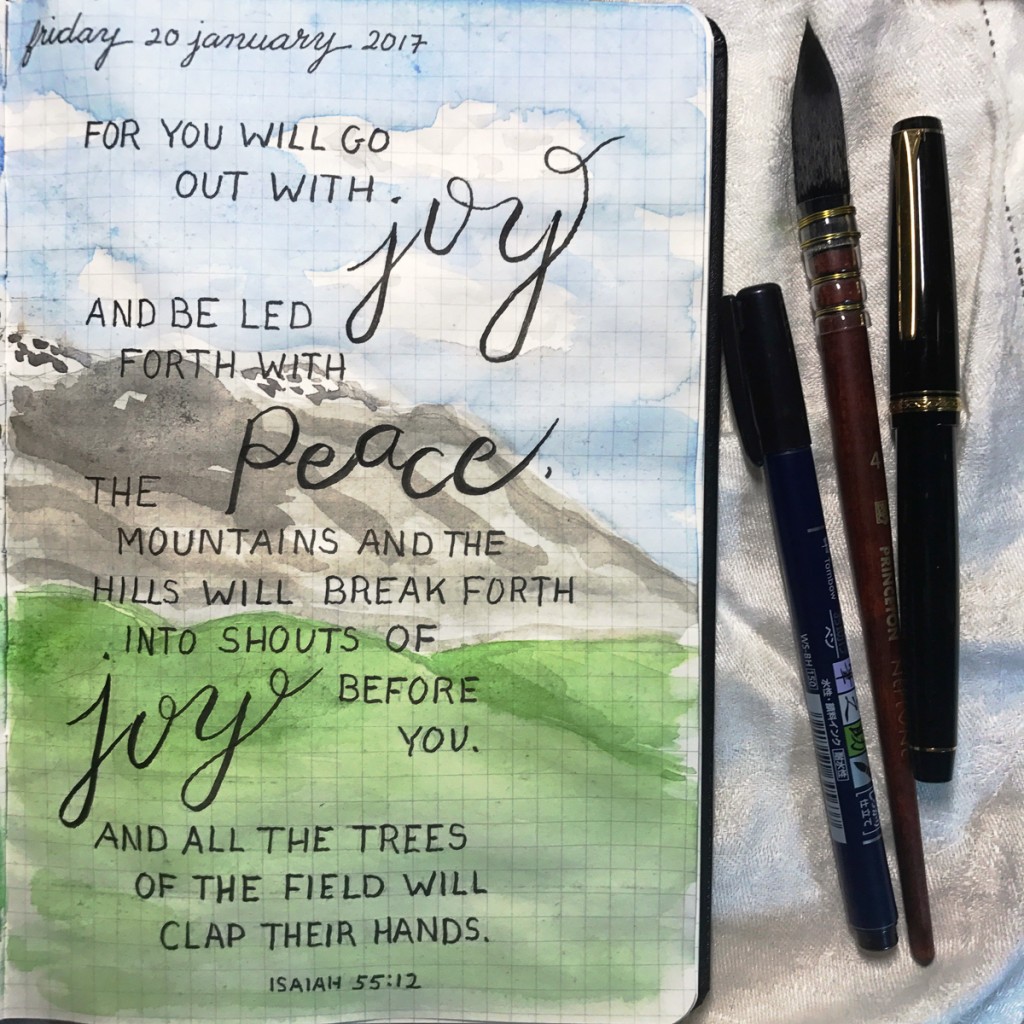 friday 20 january 2017
FOR YOU WILL GO
OUT WITH joy
AND BE LED
FORTH WITH
peace.
THE
MOUNTAINS AND THE
HILLS WILL BREAK FORTH
INTO SHOUTS OF
joy BEFORE
YOU.
AND ALL THE TREES
OF THE FIELD WILL
CLAP THEIR HANDS.
ISAIAH 55:12
Tombow
WS-BH(150)
水性・顔料インク
4
PRINCETON NEPTUNE